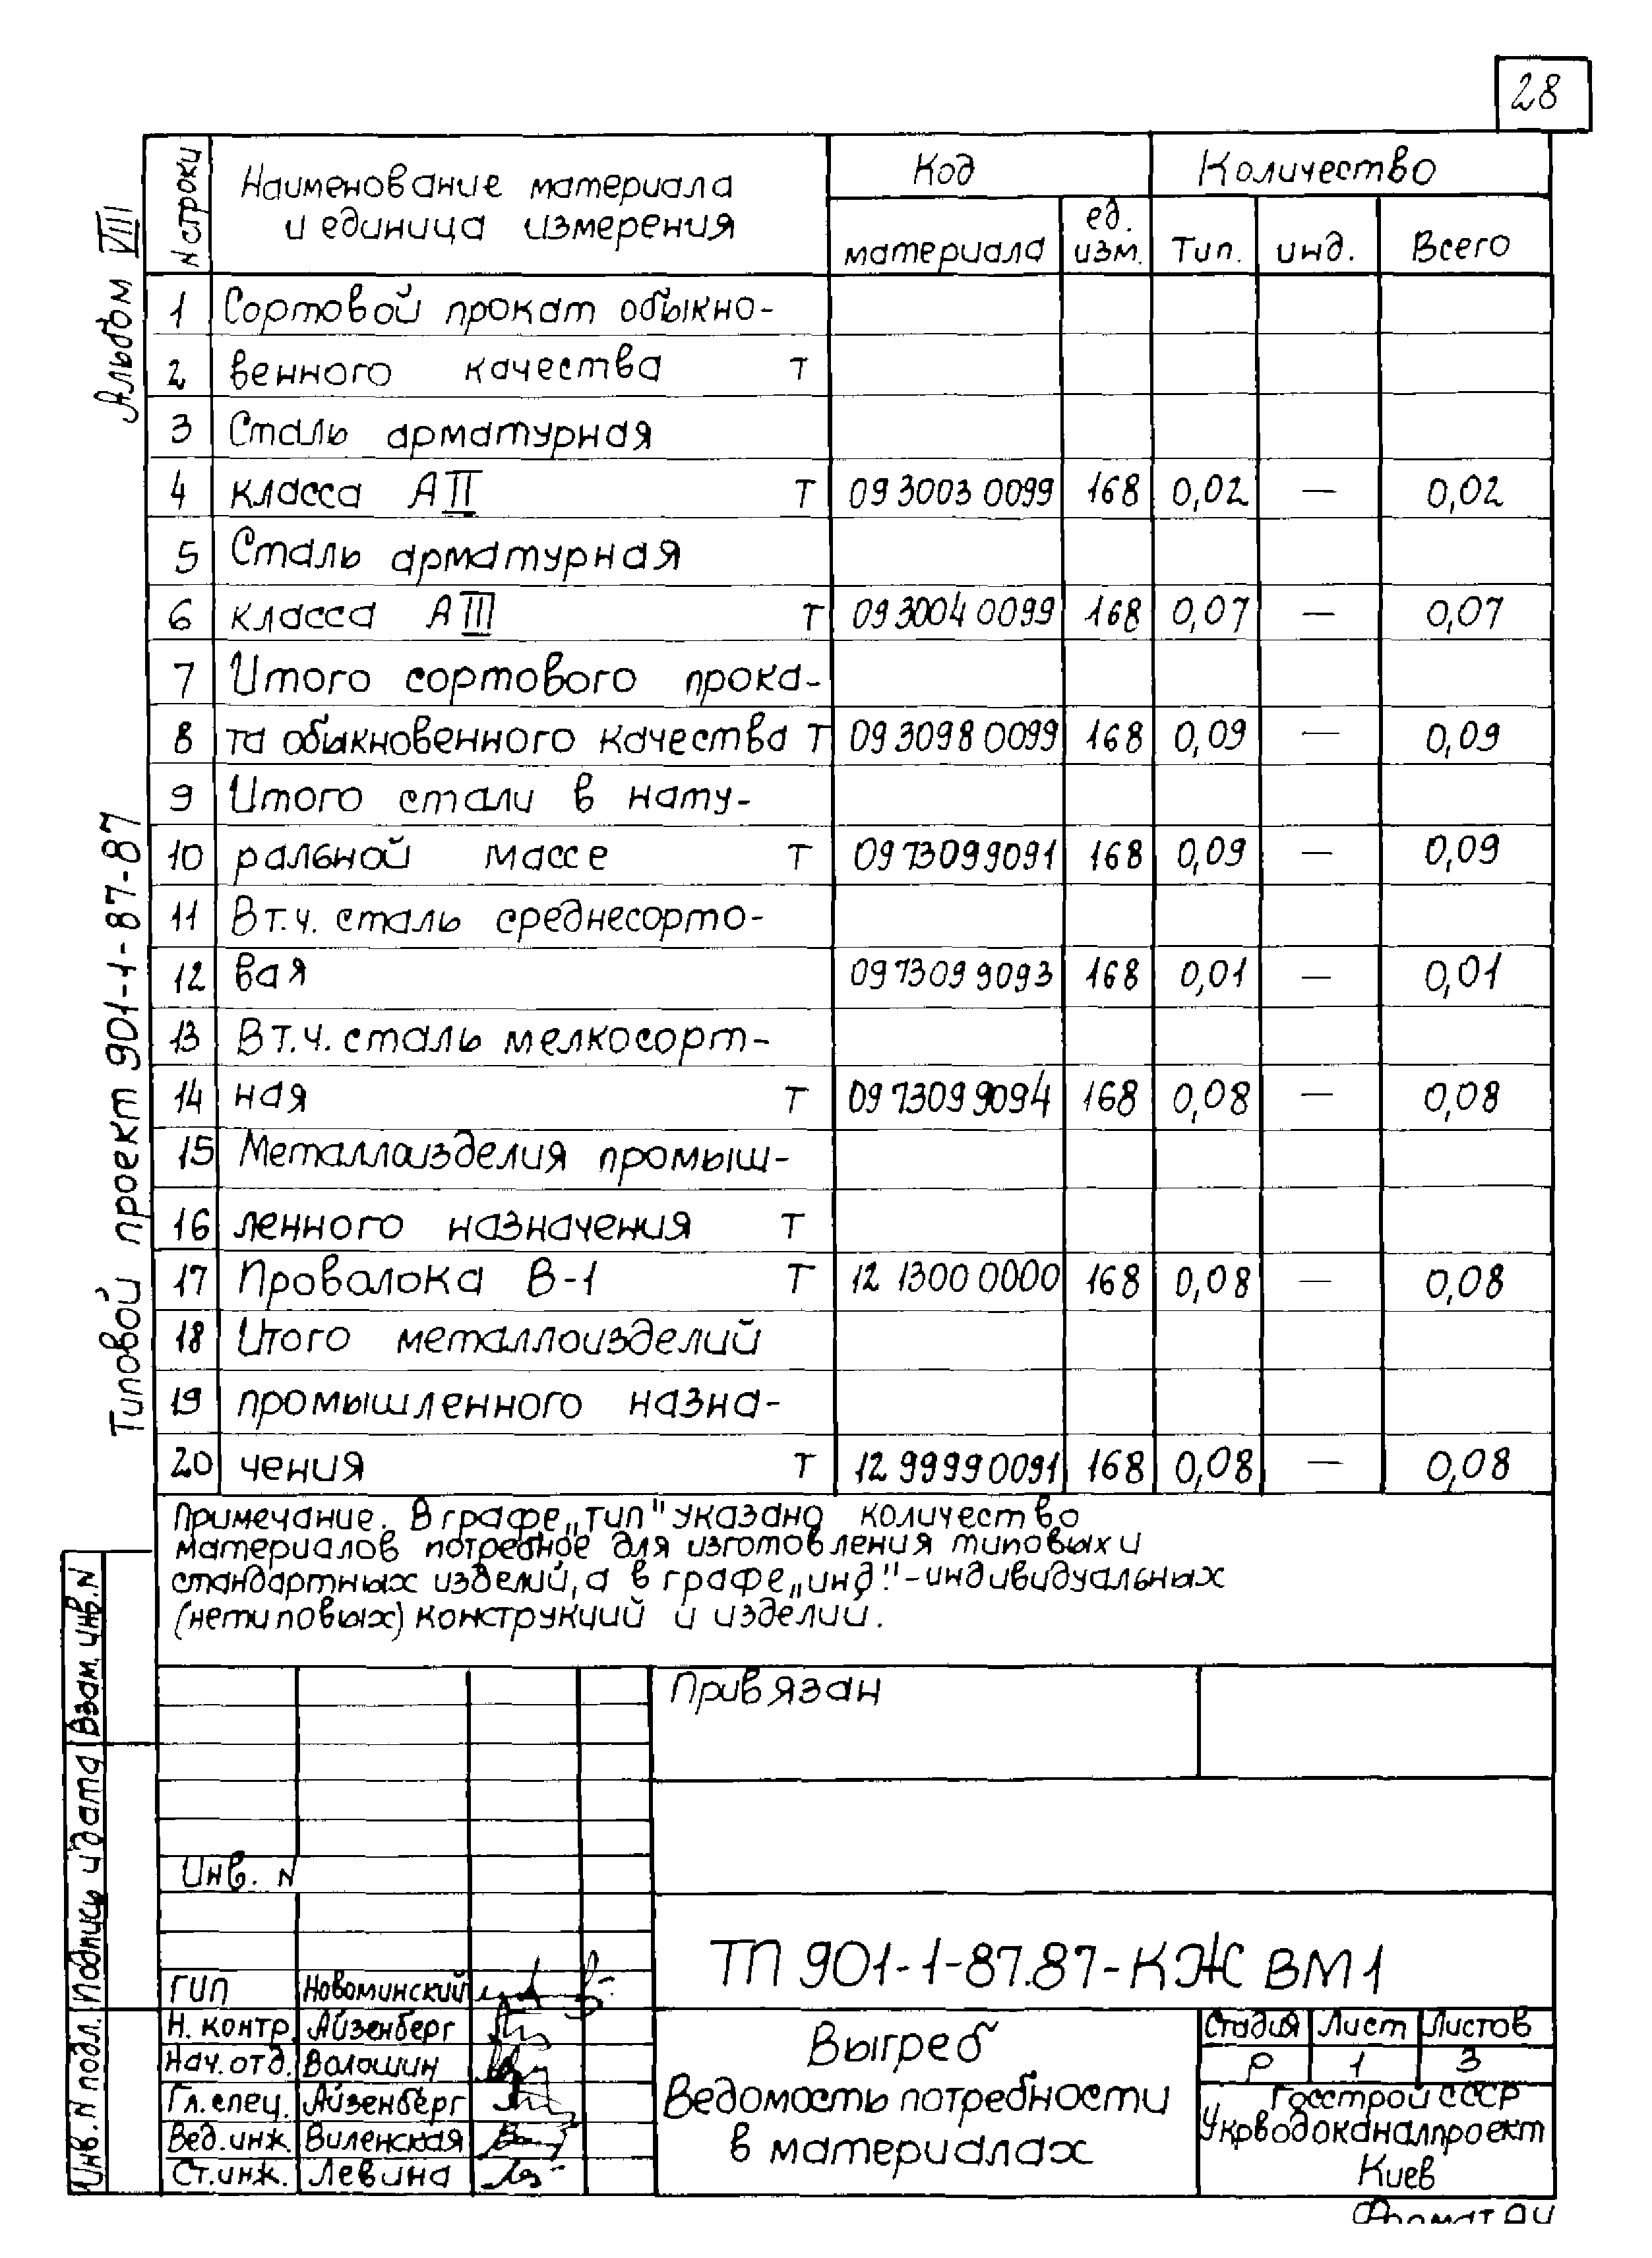 28
Альбом VIII
Типовой проект 901-1-87-87
N строки | Наименование материала и единица измерения | Код | Количество
материала | ед. изм. | Тип. | инд. | Всего
1 Сортовой прокат обыкно-
2 венного качества т
3 Сталь арматурная
4 класса А II т 09 3003 0099 168 0,02 — 0,02
5 Сталь арматурная
6 класса А III т 09 3004 0099 168 0,07 — 0,07
7 Итого сортового прока-
8 та обыкновенного качества т 09 3098 0099 168 0,09 — 0,09
9 Итого стали в нату-
10 ральной массе т 0973099091 168 0,09 — 0,09
11 В т.ч. сталь среднесорто-
12 вая 0973099093 168 0,01 — 0,01
13 В т.ч. сталь мелкосорт-
14 ная т 0973099094 168 0,08 — 0,08
15 Металлоизделия промыш-
16 ленного назначения т
17 Проволока В-1 т 12 13000000 168 0,08 — 0,08
18 Итого металлоизделий
19 промышленного назна-
20 чения т 12 99990091 168 0,08 — 0,08
Примечание. В графе „тип" указано количество
материалов потребное для изготовления типовых и
стандартных изделий, а в графе „инд." - индивидуальных
(нетиповых) конструкций и изделий.
Привязан
Инв. N
ТП 901-1-87.87-КЖ ВМ1
ГИП Новоминский
Н. контр. Айзенберг
Нач. отд. Волошин
Гл. спец. Айзенберг
Вед. инж. Виленская
Ст. инж. Левина
Выгреб
Ведомость потребности
в материалах
Стадия Лист Листов
Р 1 3
Госстрой СССР
Укрводоканалпроект
Киев
Формат А4
Взам. инв. N
Подпись и дата
Инв. N подл.